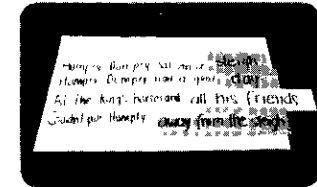 Humpty Dumpty sat on a sleigh
Humpty Dumpty had a great day
All the king's horses and all his friends
Couldn't pull Humpty away from the sleigh